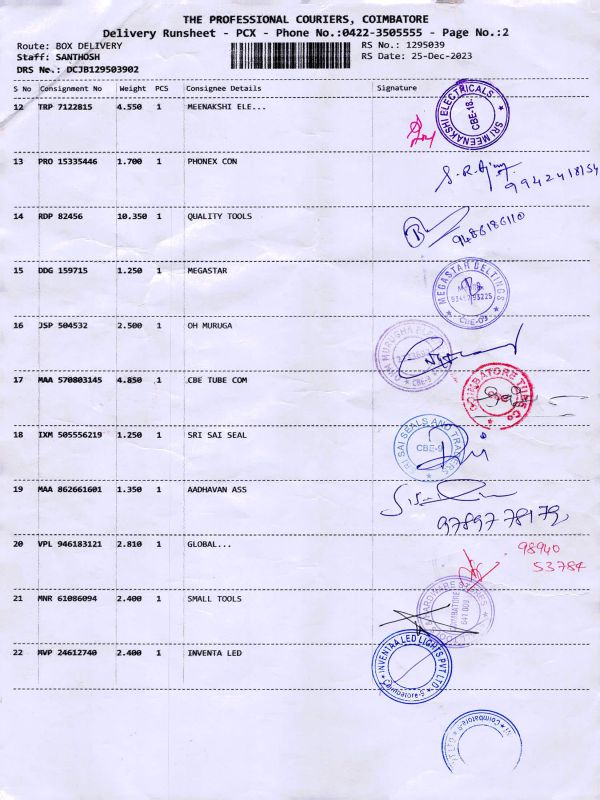 THE PROFESSIONAL COURIERS, COIMBATORE
Delivery Runsheet - PCX - Phone No.:0422-3505555 - Page No.:2
Route: BOX DELIVERY
RS No.: 1295039
Staff: SANTHOSH
RS Date: 25-Dec-2023
DRS No.: DCJB129503902
S No Consignment No Weight PCS Consignee Details Signature
12 TRP 7122815 4.550 1 MEENAKSHI ELE...
SRI MEENAKSHI ELECTRICALS
CBE-18.
13 PRO 15335446 1.700 1 PHONEX CON
9942418154
14 RDP 82456 10.350 1 QUALITY TOOLS
9486186110
15 DDG 159715 1.250 1 MEGASTAR
MEGASTAR BELTINGS
CBE-03
16 JSP 504532 2.500 1 OH MURUGA
CBE-9
17 MAA 570803145 4.850 1 CBE TUBE COM
COIMBATORE TUBE Co
18 IXM 505556219 1.250 1 SRI SAI SEAL
SRI SAI SEALS AND TRADERS
CBE-9
19 MAA 862661601 1.350 1 AADHAVAN ASS
97897 78179
20 VPL 946183121 2.810 1 GLOBAL...
98940
53784
21 MNR 61086094 2.400 1 SMALL TOOLS
HARDWARE STORES
COIMBATORE
641 009
22 MVP 24612740 2.400 1 INVENTA LED
INVENTAA LED LIGHTS PVT LTD
Coimbatore-9